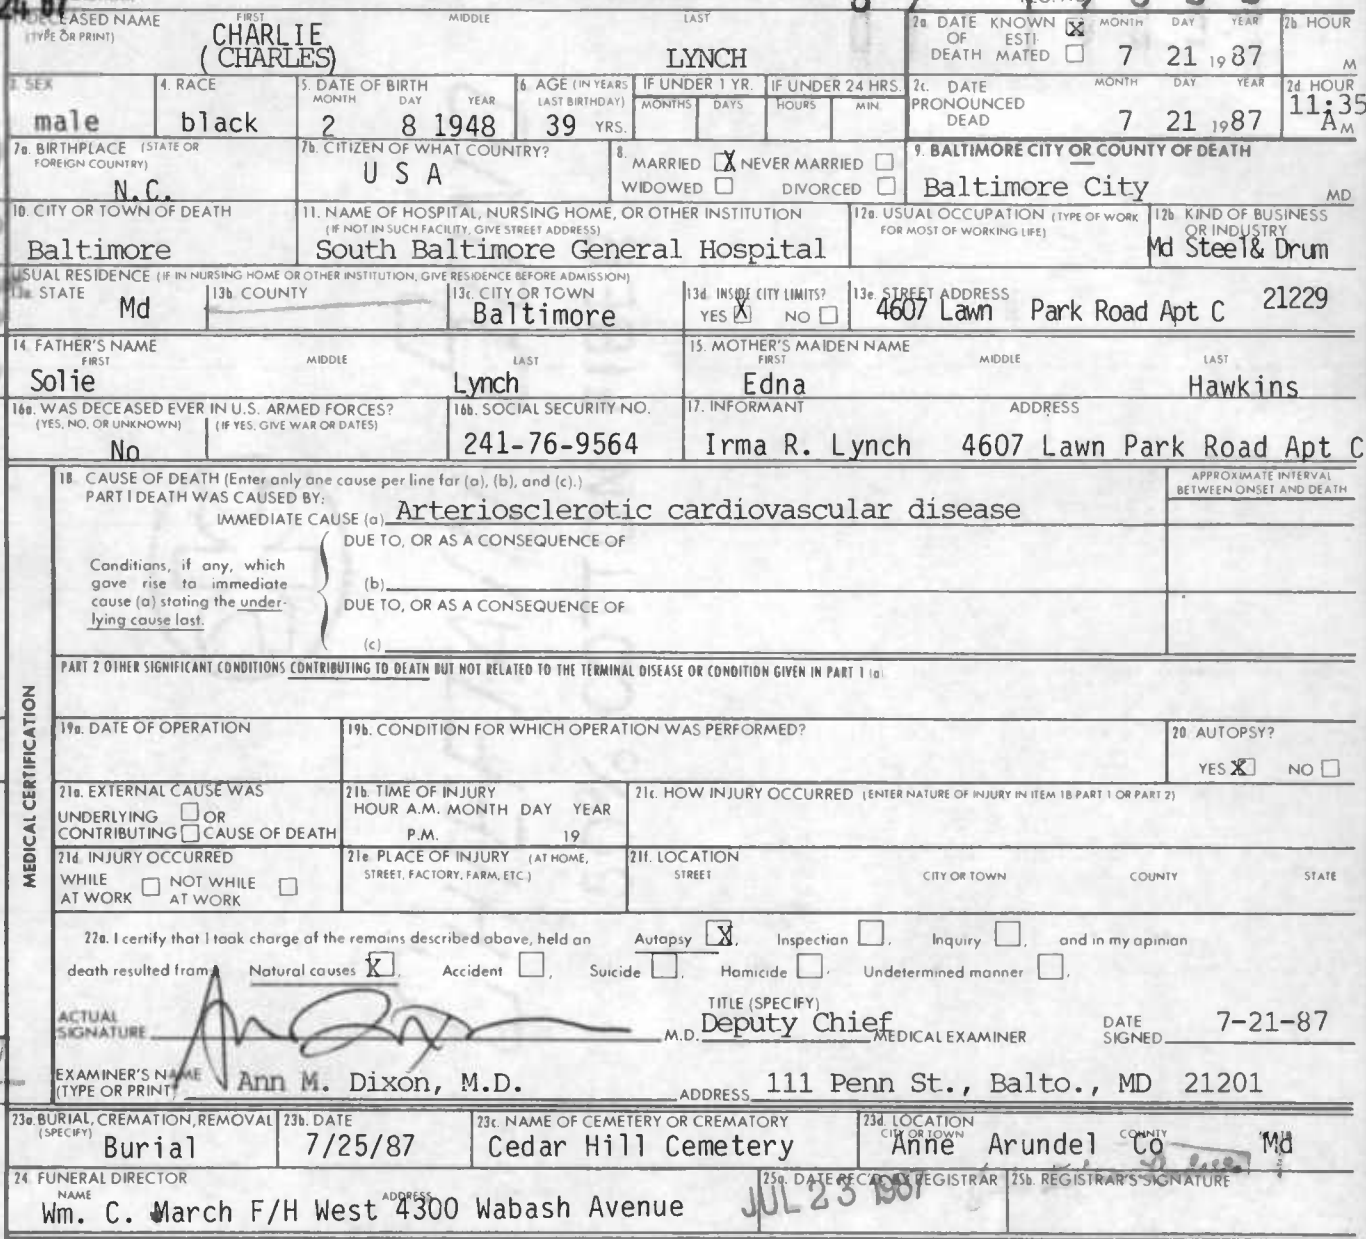 DECEASED NAME FIRST MIDDLE LAST
(TYPE OR PRINT)
CHARLIE
(CHARLES) LYNCH
2a. DATE KNOWN X MONTH DAY YEAR 2b. HOUR
OF ESTI-
DEATH MATED 7 21 1987 M
3. SEX male
4. RACE black
5. DATE OF BIRTH
MONTH DAY YEAR
2 8 1948
6. AGE (IN YEARS
LAST BIRTHDAY)
39 YRS.
IF UNDER 1 YR. IF UNDER 24 HRS.
MONTHS DAYS HOURS MIN.
2c. DATE MONTH DAY YEAR 2d. HOUR
PRONOUNCED
DEAD 7 21 1987 11:35 A M
7a. BIRTHPLACE (STATE OR
FOREIGN COUNTRY)
N.C.
7b. CITIZEN OF WHAT COUNTRY?
U S A
8. MARRIED X NEVER MARRIED
WIDOWED DIVORCED
9. BALTIMORE CITY OR COUNTY OF DEATH
Baltimore City MD
10. CITY OR TOWN OF DEATH
Baltimore
11. NAME OF HOSPITAL, NURSING HOME, OR OTHER INSTITUTION
(IF NOT IN SUCH FACILITY, GIVE STREET ADDRESS)
South Baltimore General Hospital
12a. USUAL OCCUPATION (TYPE OF WORK
FOR MOST OF WORKING LIFE)
12b. KIND OF BUSINESS
OR INDUSTRY
Md Steel& Drum
USUAL RESIDENCE (IF IN NURSING HOME OR OTHER INSTITUTION, GIVE RESIDENCE BEFORE ADMISSION)
13a. STATE
Md
13b. COUNTY
13c. CITY OR TOWN
Baltimore
13d. INSIDE CITY LIMITS?
YES X NO
13e. STREET ADDRESS 21229
4607 Lawn Park Road Apt C
14. FATHER'S NAME
FIRST MIDDLE LAST
Solie Lynch
15. MOTHER'S MAIDEN NAME
FIRST MIDDLE LAST
Edna Hawkins
16a. WAS DECEASED EVER IN U.S. ARMED FORCES?
(YES, NO, OR UNKNOWN) (IF YES, GIVE WAR OR DATES)
No
16b. SOCIAL SECURITY NO.
241-76-9564
17. INFORMANT ADDRESS
Irma R. Lynch 4607 Lawn Park Road Apt C
MEDICAL CERTIFICATION
18 CAUSE OF DEATH (Enter only one cause per line for (a), (b), and (c).)
PART I DEATH WAS CAUSED BY:
IMMEDIATE CAUSE (a) Arteriosclerotic cardiovascular disease
APPROXIMATE INTERVAL
BETWEEN ONSET AND DEATH
DUE TO, OR AS A CONSEQUENCE OF
Conditions, if any, which
gave rise to immediate
cause (a) stating the under-
lying cause last.
(b)
DUE TO, OR AS A CONSEQUENCE OF
(c)
PART 2 OTHER SIGNIFICANT CONDITIONS CONTRIBUTING TO DEATH BUT NOT RELATED TO THE TERMINAL DISEASE OR CONDITION GIVEN IN PART 1 (a)
19a. DATE OF OPERATION
19b. CONDITION FOR WHICH OPERATION WAS PERFORMED?
20. AUTOPSY?
YES X NO
21a. EXTERNAL CAUSE WAS
UNDERLYING OR
CONTRIBUTING CAUSE OF DEATH
21b. TIME OF INJURY
HOUR A.M. MONTH DAY YEAR
P.M. 19
21c. HOW INJURY OCCURRED (ENTER NATURE OF INJURY IN ITEM 18 PART 1 OR PART 2)
21d. INJURY OCCURRED
WHILE NOT WHILE
AT WORK AT WORK
21e PLACE OF INJURY (AT HOME,
STREET, FACTORY, FARM, ETC.)
21f. LOCATION
STREET CITY OR TOWN COUNTY STATE
22a. I certify that I took charge of the remains described above, held an Autopsy X, Inspection , Inquiry , and in my opinion
death resulted from Natural causes X, Accident , Suicide , Homicide , Undetermined manner .
ACTUAL
SIGNATURE M.D.
TITLE (SPECIFY)
Deputy Chief MEDICAL EXAMINER
DATE
SIGNED 7-21-87
EXAMINER'S NAME
(TYPE OR PRINT) Ann M. Dixon, M.D. ADDRESS 111 Penn St., Balto., MD 21201
23a. BURIAL, CREMATION, REMOVAL
(SPECIFY)
Burial
23b. DATE
7/25/87
23c. NAME OF CEMETERY OR CREMATORY
Cedar Hill Cemetery
23d. LOCATION
CITY OR TOWN COUNTY
Anne Arundel Co Md
24. FUNERAL DIRECTOR
NAME ADDRESS
Wm. C. March F/H West 4300 Wabash Avenue
25a. DATE REC'D BY REGISTRAR
JUL 23 1987
25b. REGISTRAR'S SIGNATURE